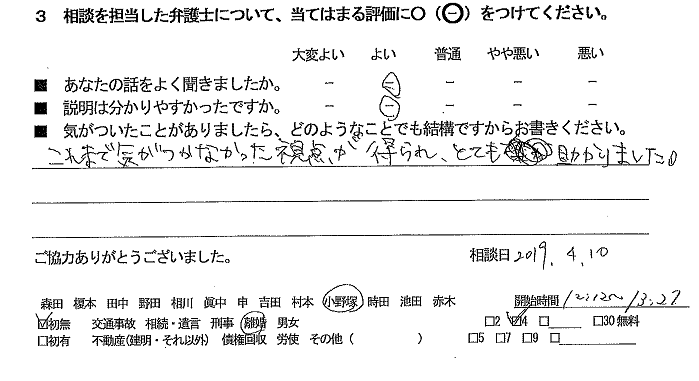 3 相談を担当した弁護士について、当てはまる評価に○(㊀)をつけてください。
大変よい よい 普通 やや悪い 悪い
■ あなたの話をよく聞きましたか。 － － － － －
■ 説明は分かりやすかったですか。 － － － － －
■ 気がついたことがありましたら、どのようなことでも結構ですからお書きください。
これまで気がつかなかった視点が得られ、とても 助かりました。
ご協力ありがとうございました。 相談日 2019. 4. 10
森田 榎本 田中 野田 相川 眞中 申 吉田 村本 小野塚 時田 池田 赤木 開始時間 12:12～13:27
☑初無 交通事故 相続・遺言 刑事 離婚 男女 □2 ☑4 □ □30無料
□初有 不動産(建明・それ以外) 債権回収 労使 その他( ) □5 □7 □9 □